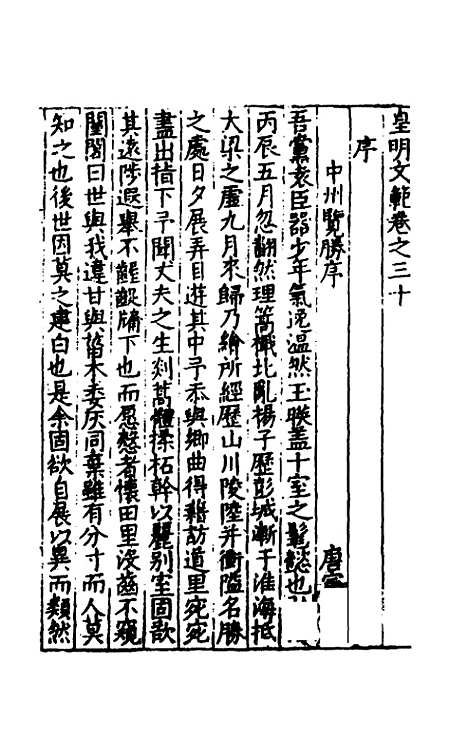 皇明文範卷之三十
序
中州覽勝序　唐寅
吾黨袁臣器少年氣逸溫然玉暎蓋十室之髦懿也
丙辰五月忽翻然理篙檝北亂楊子歷彭城漸于淮海抵
大梁之墟九月來歸乃繪所經歷山川陵陸并衝隘名勝
之處日夕展弄目遊其中予忝與鄉曲得藉訪道里宛宛
盡出指下予聞丈夫之生剡蒿體揉柘幹以麗別室固欲
其遠陟遐舉不齷齪牖下也而愿愨者懷田里沒齒不窺
闉闍曰世與我違甘與菑木委灰同棄雖有分寸而人莫
知之也後世因莫之建白也是余固欲自展以異而頹然